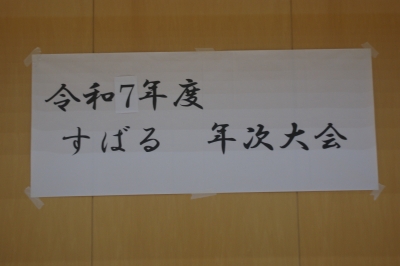 令和7年度
すばる　年次大会